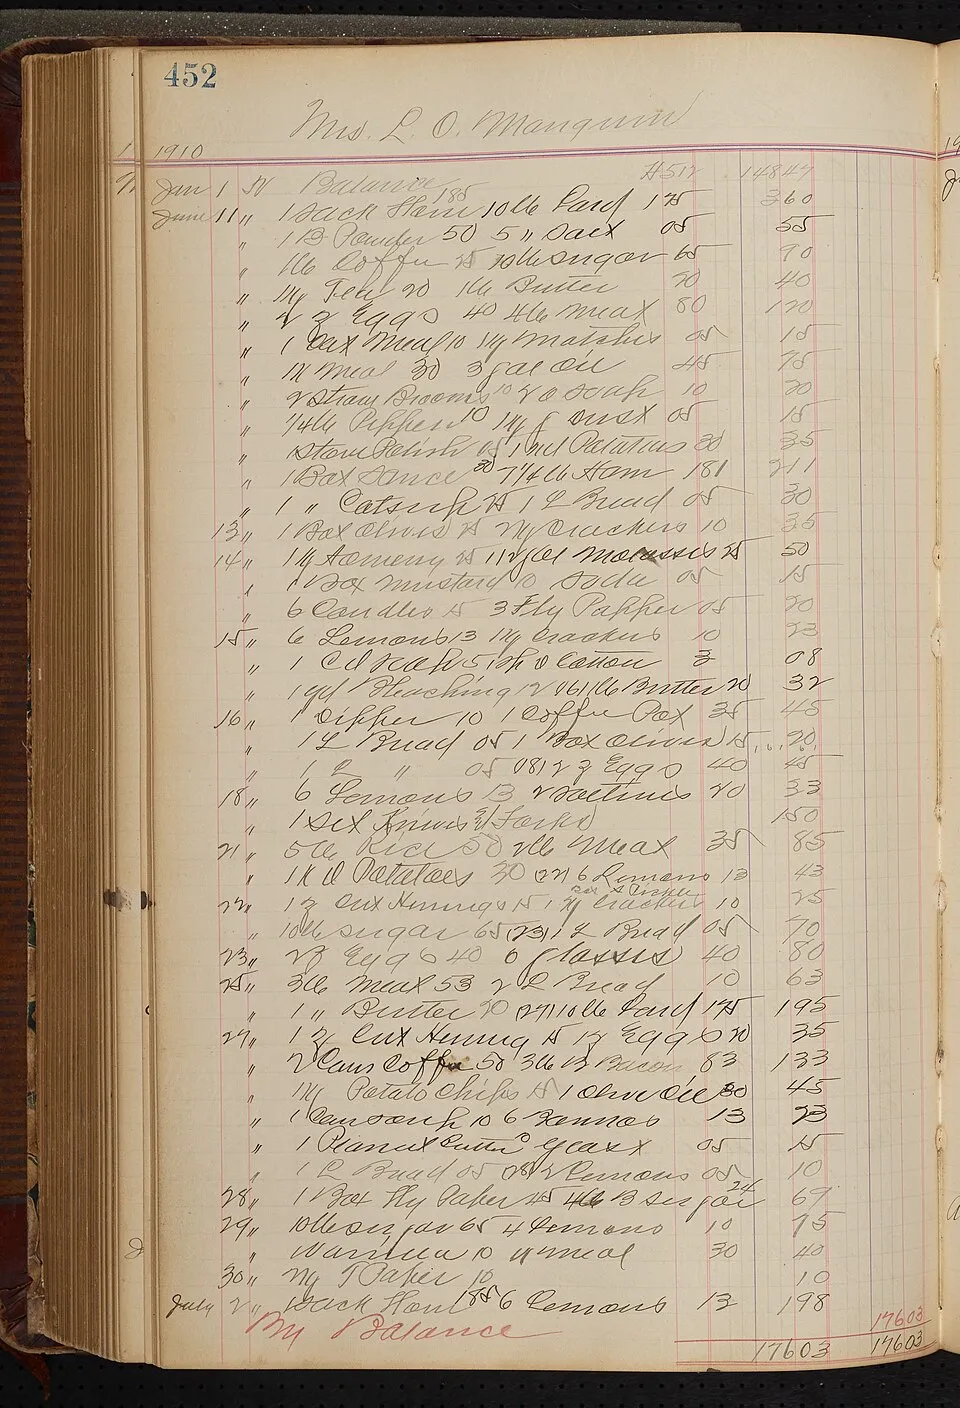 452
Mrs. L. O. Mangum
1910
Jan 1 Balance #512 14847
June 11 " 1 Sack Flour 185 10 lb Lard 175 360
" 1 B Powder 50 5 " Salt 05 55
" 1 lb Coffee 25 10 lb Sugar 65 90
" Tea 20 1 lb Butter 20 40
" 2 z Eggs 40 4 lb Meat 80 120
" 1 Oat Meal 10 Matches 05 15
" Meal 30 3 gal Oil 45 75
" 2 Straw Brooms 10 2 O Soap 10 20
" 1/4 lb Pepper 10 05 15
" Stove Polish 05 Potatoes 30 35
" 1 Box Sauce 30 7 1/4 lb Ham 181 211
" 1 " Catsup 25 1 L Bread 05 30
13 " 1 Box Olives 25 2 Pkg Crackers 10 35
14 " Hominy 25 1/2 gal Molasses 25 50
" 1 Box Mustard 10 Soda 05 15
" 6 Candles 15 3 Fly Papper 05 20
15 " 6 Lemons 13 Crackers 10 23
" 1 5 Cotton 3 08
" 1 yd Bleaching 12 1 lb Butter 20 32
16 " 1 Dipper 10 1 Coffee Pot 35 45
" 1 L Bread 05 1 Box Olives 15 20
" 1 L " 05 2 z Eggs 40 45
18 " 6 Lemons 13 20 33
" 1 Set Knives & Forks 150
21 " 5 lb Rice 50 2 lb Meat 35 85
" Potatoes 30 6 Lemons 13 43
22 " 1 z 15 Crackers 10 25
" 10 lb Sugar 65 (23) 1 L Bread 05 70
23 " 2 z Eggs 40 6 Glasses 40 80
25 " 3 lb Meat 53 2 L Bread 10 63
" 1 " Butter 20 (27) 10 lb Lard 175 195
27 " 1 z 15 1 z Eggs 20 35
" 2 Cans Coffee 50 3 lb B Bacon 83 133
" Potato Chips 15 1 Olive Oil 30 45
" 1 Can Soup 10 6 13 23
" 1 Peanut Butter 05 15
" 1 L Bread 05 Lemons 05 10
28 " 1 Box Fly Paper 45 4 lb B Sugar 24 69
29 " 10 lb Sugar 65 4 Lemons 10 75
" 10 Meal 30 40
30 " T Paper 10 10
July 2 " 1 Sack Flour 185 6 Lemons 13 198
By Balance 17603
17603 17603